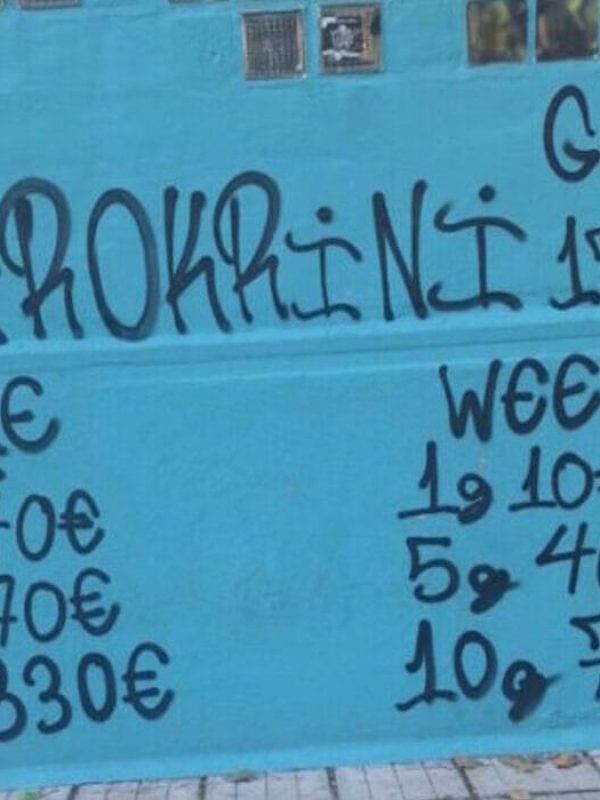 G
ROKRiNi 17
€ WEE
0€ 1g 10
70€ 5g 4
330€ 10g